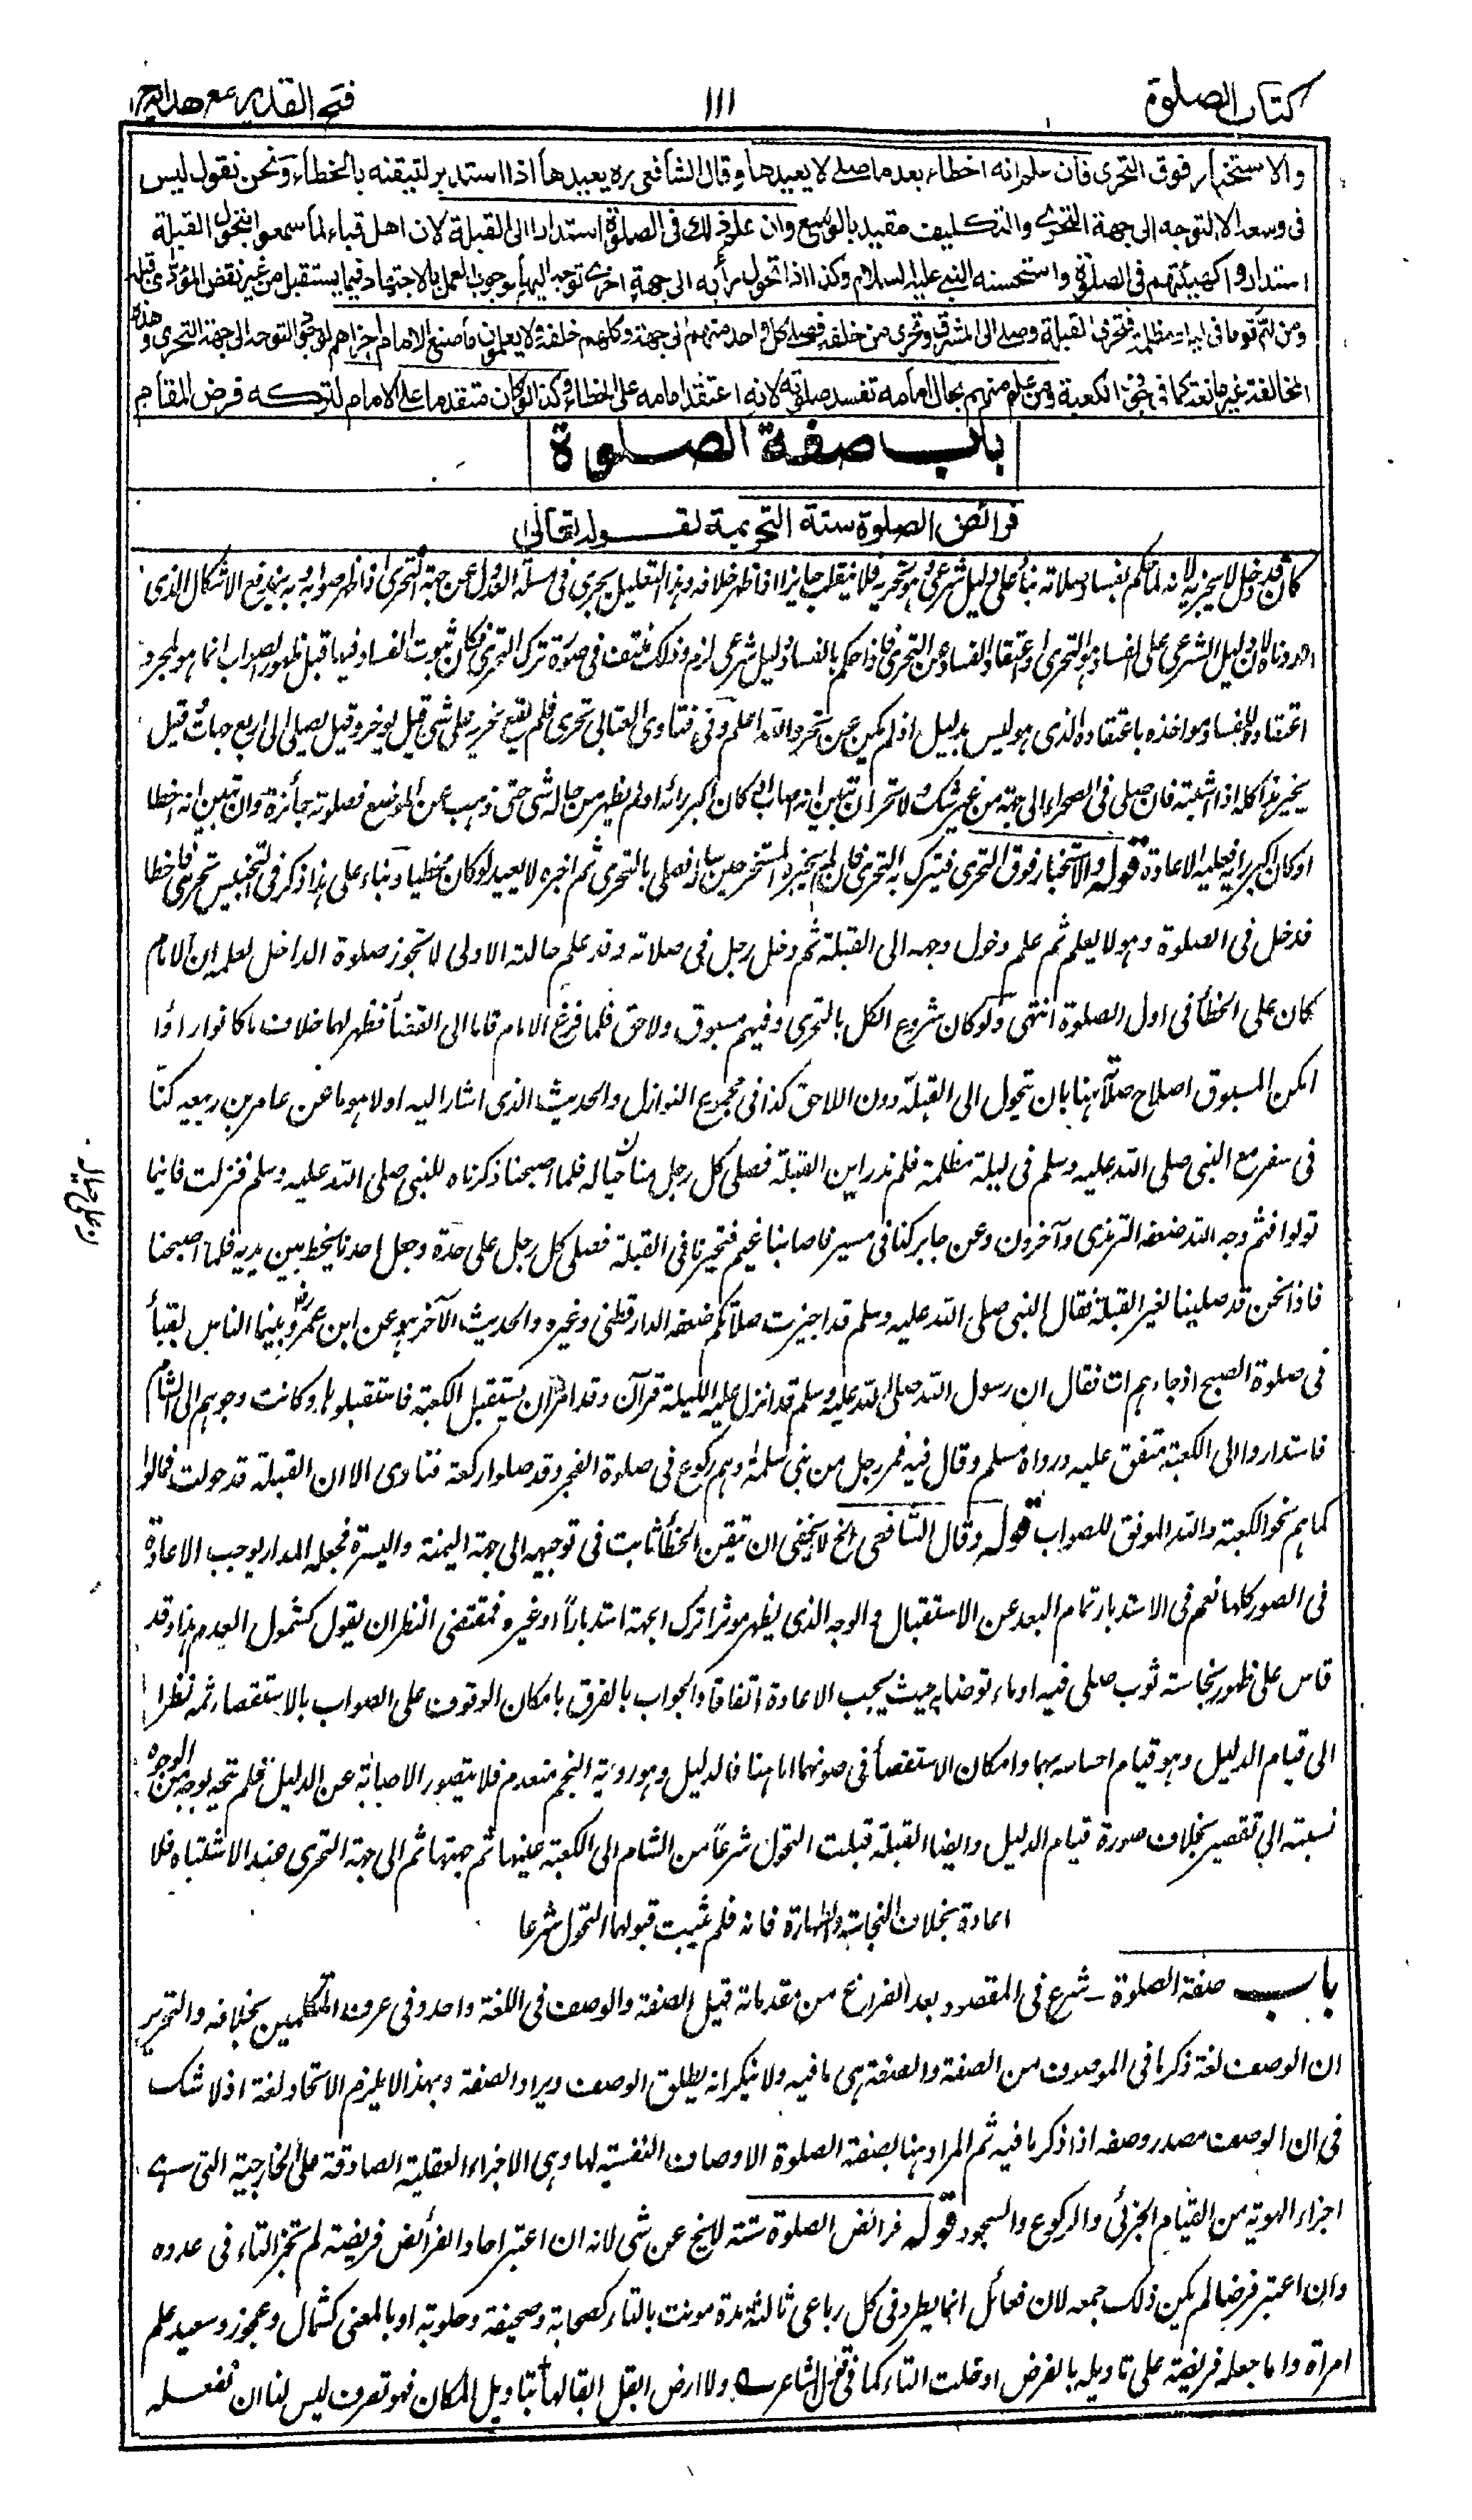 كتاب الصلوة
١١١
فتح القدير مع هدايه ج١
والاستخبار فوق التحرى فان علم انه اخطاء بعد ما صلى لا يعيدها وقال الشافعى ره يعيدها اذا استدبر لتيقنه بالخطاء ونحن نقول ليس
فى وسعه الا التوجه الى جهة التحرى والتكليف مقيد بالوسع وان علم ذلك فى الصلوة استدار الى القبلة لان اهل قباء لما سمعوا بتحول القبلة
استداروا كهيئتهم فى الصلوة واستحسنه النبى عليه السلام وكذا اذا تحول رأيه الى جهة اخرى توجه اليها لوجوب العمل بالاجتهاد فيما يستقبل من غير نقض المؤدى قبله
ومن ام قوما فى ليلة مظلمة فتحرى القبلة وصلى الى المشرق وتحرى من خلفه فصلى كل واحد منهم الى جهة وكلهم خلفه ولا يعلمون ما صنع الامام اجزاهم لوجود التوجه الى جهة التحرى وهذه
المخالفة غير مانعة كما فى جوف الكعبة ومن علم منهم بحال امامه تفسد صلوته لانه اعتقد امامه على الخطاء وكذا لو كان متقدما على الامام لتركه فرض المقام
باب صفة الصلوة
فرائض الصلوة ستة التحريمة لقوله تعالى
كان قد دخل لا يجزيه لانه لما حكم بفساد صلاته بناء على دليل شرعى وهو تحريه فلا ينقلب جايزا اذا ظهر خلافه وهذا التعليل يجرى فى مسئلة العدول عن جهة التحرى اذا ظهر صوابه وبه يندفع الاشكال الذى
اوردناه لان الدليل الشرعى على الفساد هو التحرى او اعتقاد الفساد عن التحرى فاذا حكم بالفساد دليل شرعى لزم وذلك منتف فى صورة ترك التحرى فكان ثبوت الفساد فيها قبل ظهور الصواب انما هو لمجرد
اعتقاده الفساد مواخذة باعتقاده الذى هو ليس بدليل اذ لم يكن عن تحر والله اعلم وفى فتاوى العتابى تحرى فلم يقع تحريه على شئ قيل يوخر وقيل يصلى الى اربع جهات وقيل
يخير هذا كله اذا اشتبه فان صلى فى الصحراء الى جهة من غير شك ولا تحر ان تبين انه اصاب او كان اكبر رائه او لم يظهر من حاله شئ حتى ذهب عن الموضع فصلوته جائزة وان تبين انه اخطا
او كان اكبر رايه فعليه الاعادة قوله والاستخبار فوق التحرى فيترك به التحرى فان لم يخبره المستخبر حين ساله فصلى بالتحرى ثم اخبره لا يعيد لو كان مخطيا وبناء على هذا ذكر فى التجنيس تحرى فاخطا
فدخل فى الصلوة وهو لا يعلم ثم علم وحول وجهه الى القبلة ثم دخل رجل فى صلاته وقد علم حالته الاولى لا تجوز صلوة الداخل لعلمه ان الامام
كان على الخطأ فى اول الصلوة انتهى ولو كان شروع الكل بالتحرى وفيهم مسبوق ولاحق فلما فرغ الامام قاما الى القضأ فظهر لهما خلاف ما كانوا راوا
امكن المسبوق اصلاح صلاته هنا بان تحول الى القبلة دون اللاحق كذا فى مجموع النوازل والحديث الذى اشار اليه اولا هو ما عن عامر بن ربيعه كنا
فى سفر مع النبى صلى الله عليه وسلم فى ليلة مظلمة فلم ندر اين القبلة فصلى كل رجل منا حياله فلما اصبحنا ذكرناه للنبى صلى الله عليه وسلم فنزلت فاينما
تولوا فثم وجه الله ضعفه الترمذى وآخرون وعن جابر كنا فى مسير فاصابنا غيم فتحيرنا فى القبلة فصلى كل رجل على حدة وجعل احدنا يخط بين يديه فلما اصبحنا
فاذا نحن قد صلينا لغير القبلة فقال النبى صلى الله عليه وسلم قد اجيزت صلاتكم ضعفه الدارقطنى وغيره والحديث الآخر هو عن ابن عمر رض بينما الناس بقباء
فى صلوة الصبح اذ جاءهم ات فقال ان رسول الله صلى الله عليه وسلم قد انزل عليه الليلة قرآن وقد امر ان يستقبل الكعبة فاستقبلوها وكانت وجوههم الى الشام
فاستداروا الى الكعبة متفق عليه ورواه مسلم وقال فيه فمر رجل من بنى سلمة وهم ركوع فى صلوة الفجر وقد صلوا ركعة فنادى الا ان القبلة قد حولت فمالوا
كما هم نحو الكعبة والله الموفق للصواب قوله وقال الشافعى الخ لا يخفى ان تيقن الخطأ ثابت فى توجيهه الى جهة اليمنة واليسرة فجعله المدار يوجب الاعادة
فى الصور كلها نعم فى الاستدبار تمام البعد عن الاستقبال والوجه الذى يظهر موثرا ترك الجهة استدبارا او غيره فمقتضى النظر ان يقول كشمول العدم هذا وقد
قاس على ظهور نجاسة ثوب صلى فيه او ماء توضا به حيث يجب الاعادة اتفاقا والجواب بالفرق بامكان الوقوف على الصواب بالاستقصاء ثمه نظرا
الى قيام الدليل وهو قيام احساسه بهما وامكان الاستقصأ فى صونهما اما هنا فالدليل وهو روية النجم منعدم فلا يتصور الاصابة عن الدليل فلم يتجه بوجه من الوجوه
نسبته الى تقصير بخلاف صورة قيام الدليل وايضا القبلة قبلت التحول شرعا من الشام الى الكعبة عينها ثم جهتها ثم الى جهة التحرى عند الاشتباه فلا
اعادة بخلاف النجاسة والطهارة فانه فلم يثبت قبولهما التحول شرعا
باب صفة الصلوة - شرع فى المقصود بعد الفراغ من مقدماته قيل الصفة والوصف فى اللغة واحد وفى عرف المتكلمين بخلافه والتحرير
ان الوصف لغة ذكر ما فى الموصوف من الصفة والصفة هى ما فيه ولا ينكر انه يطلق الوصف ويراد الصفة وبهذا لا يلزم الاتحاد لغة اذ لا شك
فى ان الوصف مصدر وصفه اذا ذكر ما فيه ثم المراد هنا بصفة الصلوة الاوصاف النفسية لها وهى الاجزاء العقلية الصادقة على الخارجية التى هى
اجزاء الهوية من القيام الجزئى والركوع والسجود قوله فرائض الصلوة ستة لا يخ عن شئ لانه ان اعتبر احاد الفرائض فريضة لم تجز التاء فى عدده
وان اعتبر فرضا لم يكن ذلك جمعه لان فعائل انما يطرد فى كل رباعى ثالثه مدة مونث بالتاء كصحابة وصحيفة وحلوبة او بالمعنى كشمال وعجوز وسعيد علم
امراة واما جعله فريضة على تاويله بالفرض ادخلت التاء كما فى قول الشاعر ولا ارض ابقل ابقالها بتاويل المكان فهو تصرف ليس لنا ان نفعله